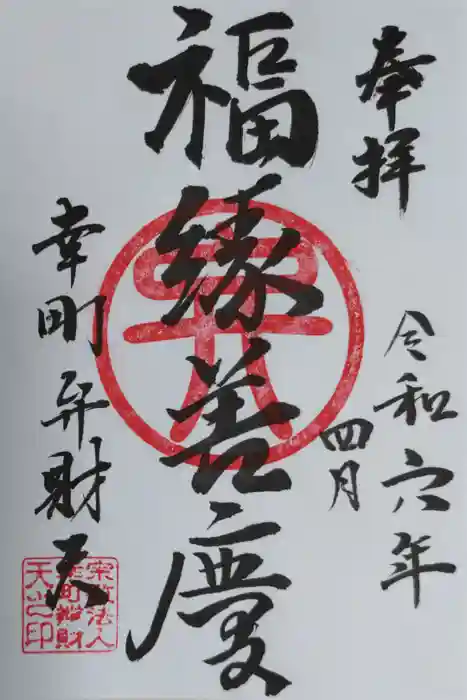 奉拝
令和六年
四月
福縁善慶
幸町弁財天
宗教法人
幸町辨財
天之印